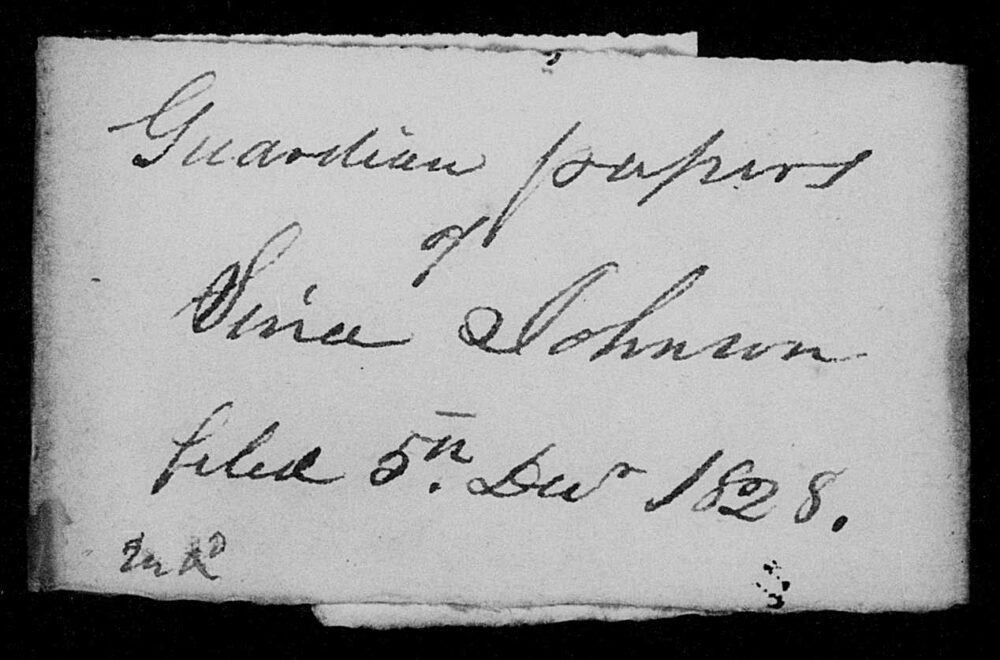 Guardian papers
of
Sina Johnson
filed 5th. Decr 1828.